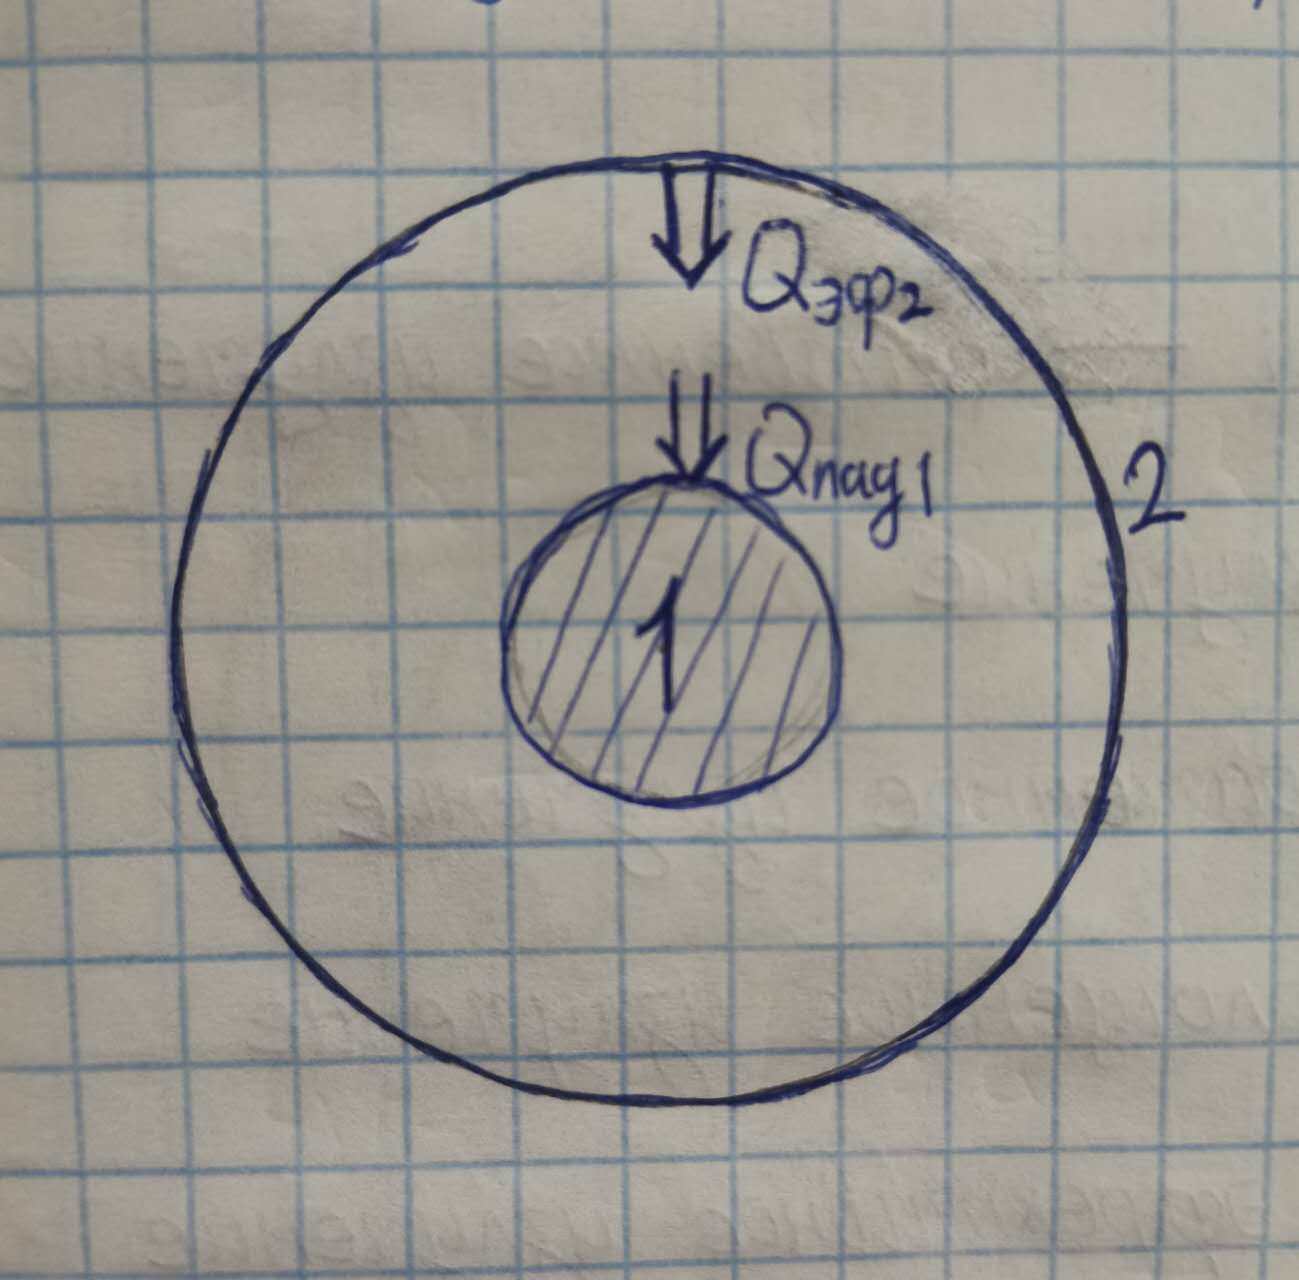 Qэф2
Qпад1
2
1